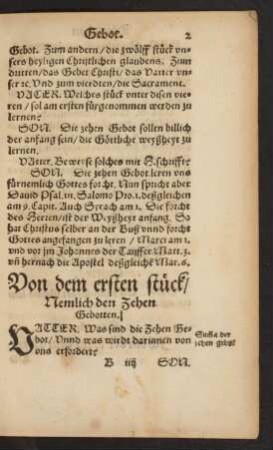 Gebot. 2
Gebot. Zum andern / die zwölff stück vn-
sers heyligen Christlichen glaubens. Zum
dritten / das Gebet Christi / das Vatter vn-
ser ꝛc. Vnd zum vierdten / die Sacrament.
VATER. Welches stück vnter disen vie-
ren / sol am ersten fürgenommen werden zu
lernen?
SON. Die zehen Gebot sollen billich
der anfang sein / die Göttliche weyßheyt zu
lernen.
Vatter. Beweise solches mit H. schrifft?
SON. Die zehen Gebot leren vns
fürnemlich Gottes forcht. Nun spricht aber
Dauid Psal. 111. Salomo Pro. 1. deßgleichen
am 9. Capit. Auch Syrach am 1. Die forcht
des Herren / ist der Weyßheyt anfang. So
hat Christus selber an der Buß vnnd forcht
Gottes angefangen zu leren / Marci am 1.
vnd vor jm Johannes der Tauffer Matt. 3.
vñ hernach die Apostel deßgleichẽ Mar. 6.
Von dem ersten stück /
Nemlich den Zehen
Gebotten.
VATTER. Was sind die Zehen Ge-
bot / Vnnd was wirdt darinnen von
vns erfordert?
Suma der
zehen gebot
B iij SON.